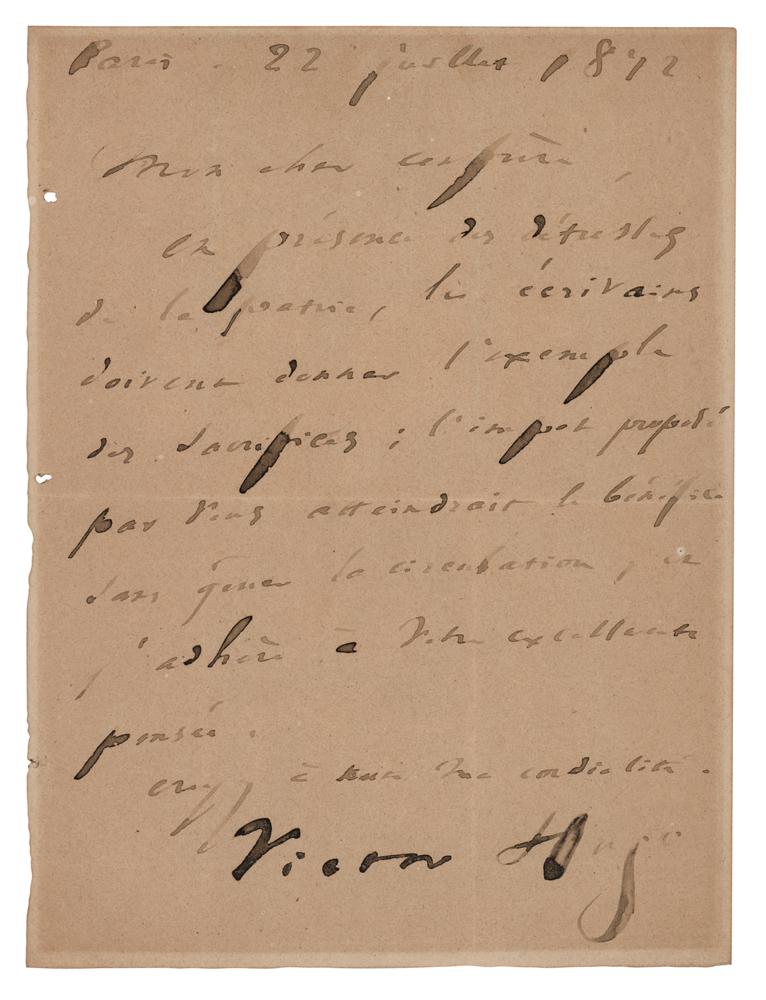 Paris - 22 juillet 1872
Mon cher confrère,
en présence des détresses
de la patrie, les écrivains
doivent donner l'exemple
des sacrifices ; l'impôt proposé
par vous atteindrait le bénéfice
sans gêner la circulation, et
j'adhère à votre excellente
pensée.
croyez à toute ma cordialité.
Victor Hugo